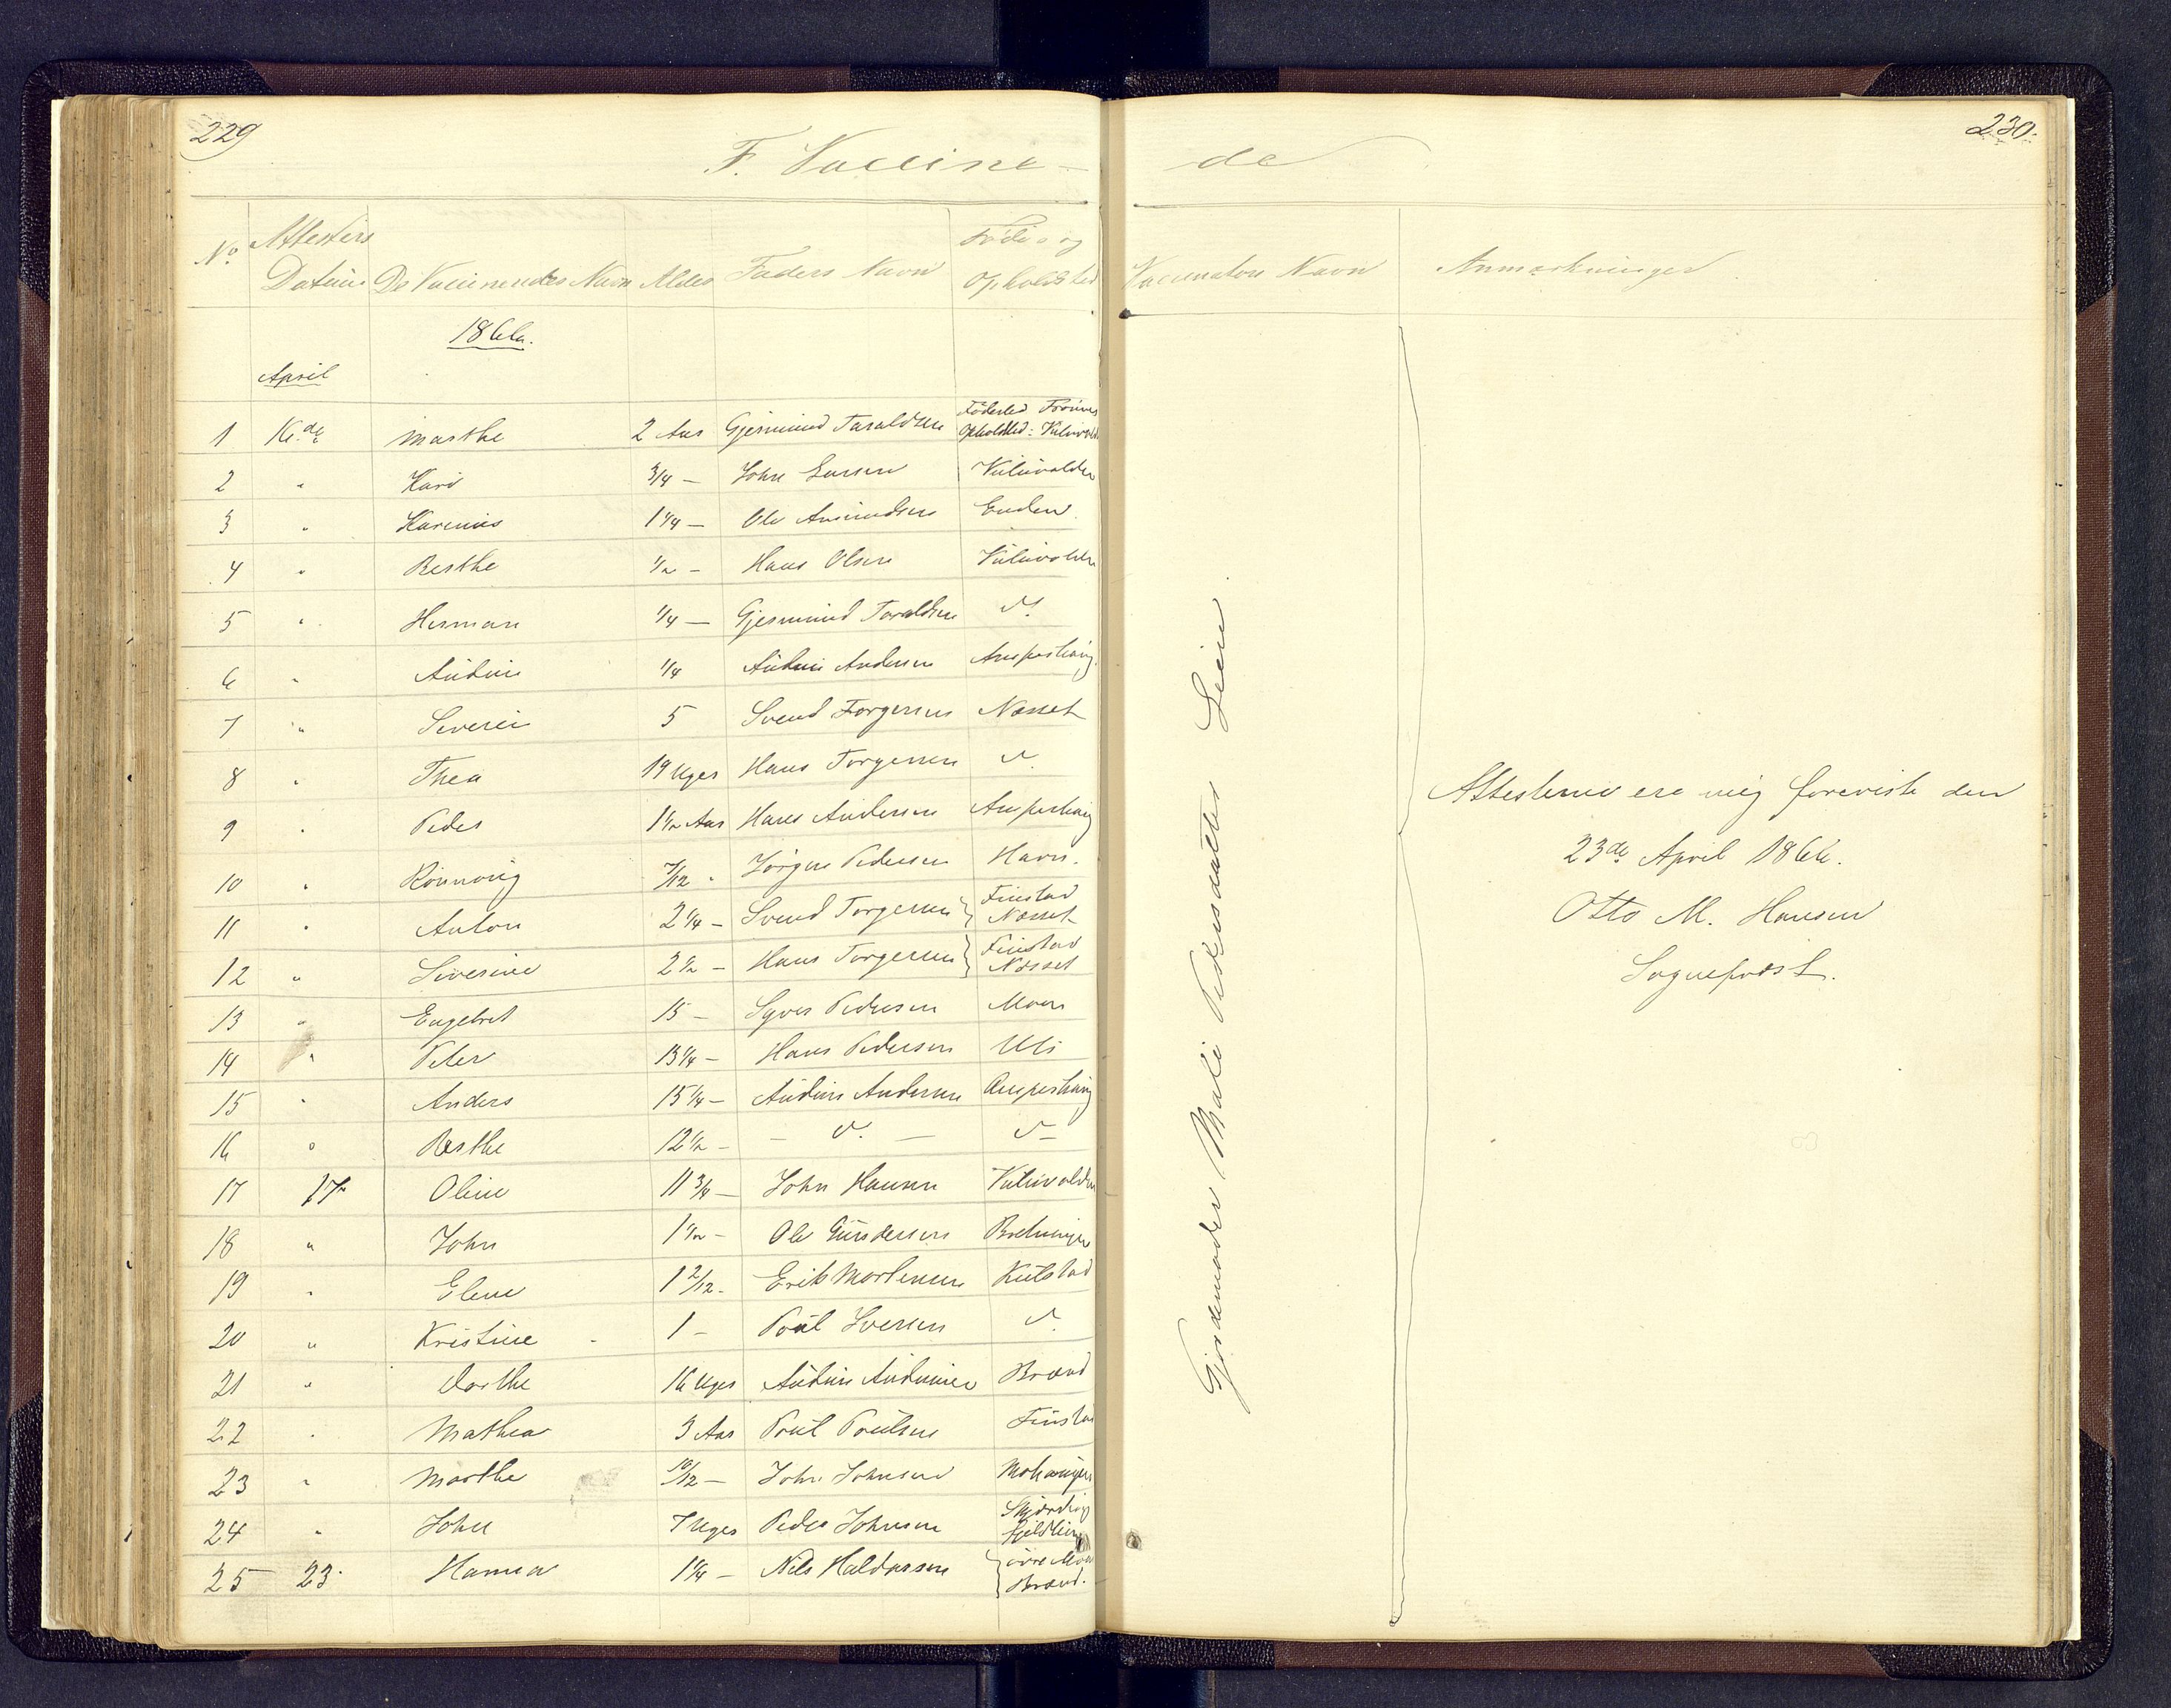 229
F. Vaccine-
No
Attestens Datum
De Vaccineredes Navn
Alder
Faders Navn
Føde- og Opholdsted
1866.
April
1 16de Marthe 2 Aar Gjermund Taraldsen Fødested Opholdsted:
2 " Kari 3/4 – John Larsen
3 " Karinius 1 1/4 – Ole Amundsen Enden
4 " Berthe 1/2 – Hans Olsen
5 " Herman 1/4 – Gjermund Taraldsen do
6 " Audun 1/4 Audun Andersen Ausperhaug
7 " Severin 5 Svend Torgersen Næsset
8 " Thea 19 Uger Hans Torgersen do
9 " Peder 1 1/2 Aar Hans Andersen Ausperhaug
10 " Rønnoug 7/12 " Jørgen Pedersen Havn.
11 " Anton 2 1/4 – Svend Torgersen } Finstad Næsset
12 " Severine 2 1/2 – Hans Torgersen } Finstad Næsset
13 " Engebret 15 – Syver Pedersen Moen
14 " Peter 13 1/4 – Hans Pedersen
15 " Anders 15 1/4 – Audun Andersen Ausperhaug
16 " Berthe 12 1/2 – – do – do –
17 17de Oline 11 3/4 – John Hansen
18 " John 1 1/2 – Ole Gundersen
19 " Elene 1 2/12 – Erik Mortensen Kulstad
20 " Kristine 1 – Poul Iversen do
21 " Dorthe 16 Uger Audun Audunsen Brænd
22 " Mathea 3 Aar Poul Poulsen Finstad
23 " Marthe 10/12 – John Johnsen
24 " John 7 Uger Peder Johnsen
25 23. Hanna 1 1/4 – Nils Haldorsen } øvre Moen Brænd.
230.
de
Vaccinators Navn
Anmærkninger
Gjordemoder Mali Pedersdatter Lien
Attesterne ere mig foreviste den
23de April 1866.
Otto M. Hansen
Sognepræst.